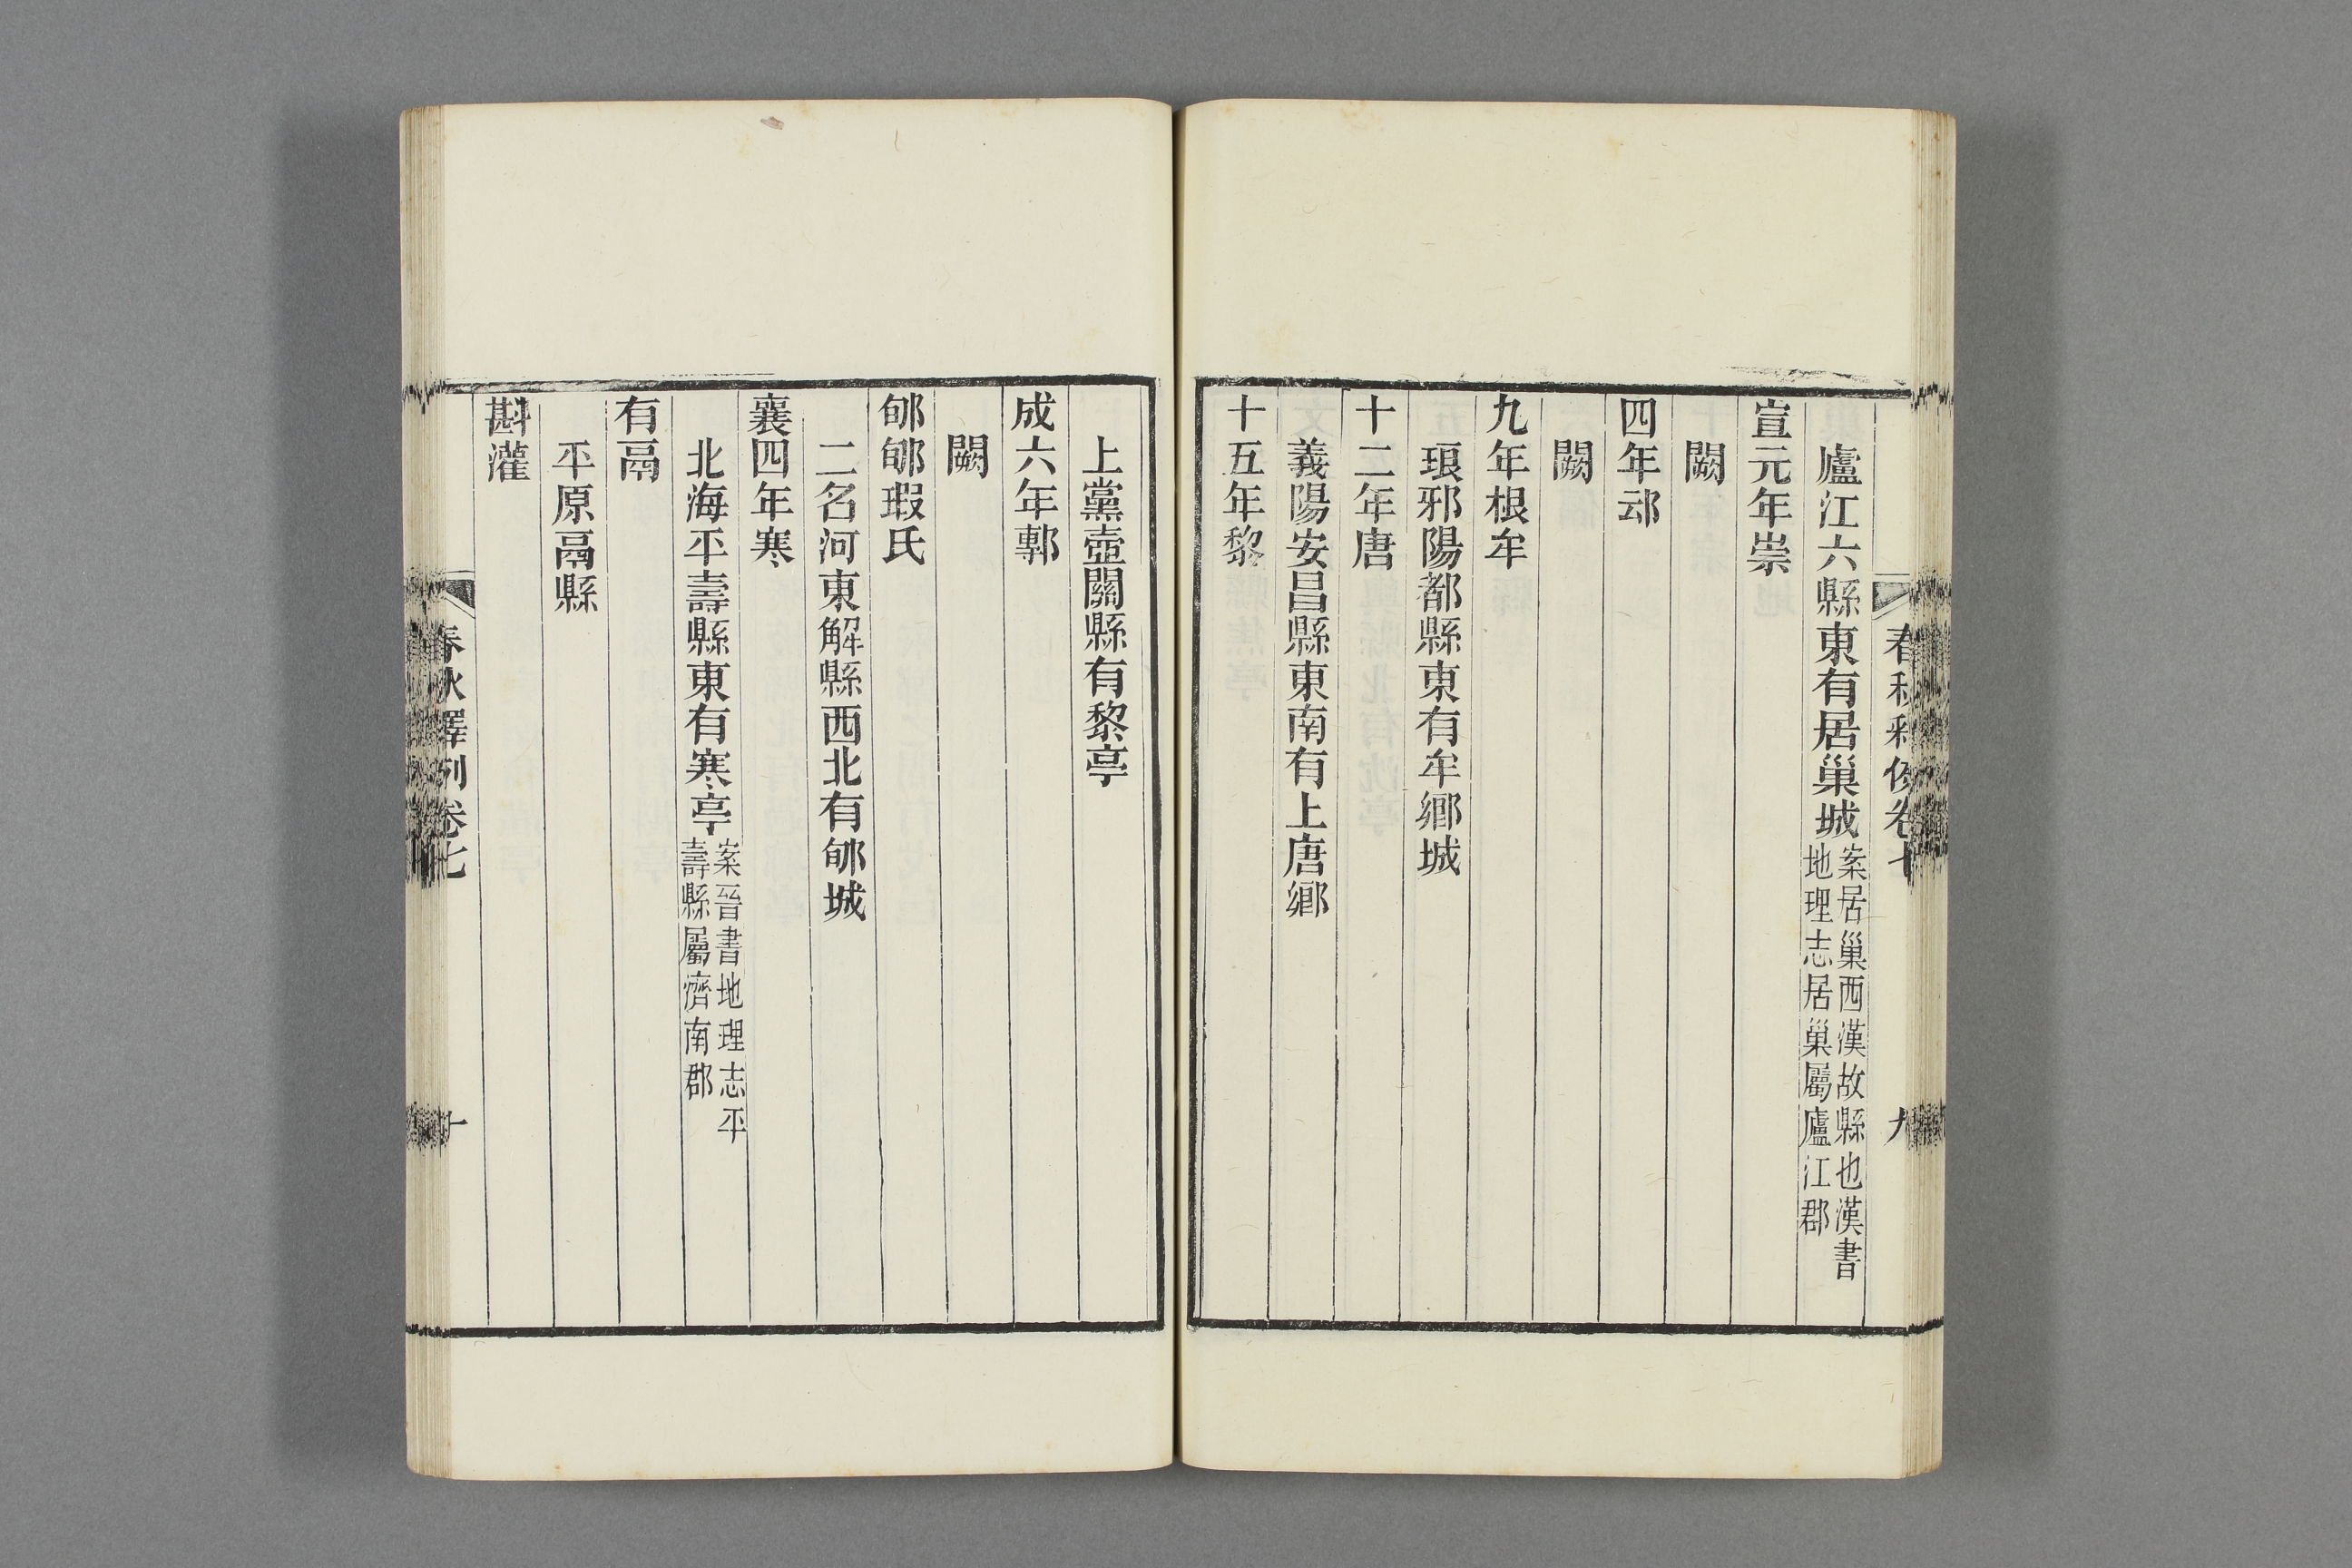 春秋釋例卷七
九
廬江六縣東有居巢城案居巢西漢故縣也漢書地理志居巢屬廬江郡
宣元年崇
闕
四年䢵
闕
九年根牟
琅邪陽都縣東有牟鄉城
十二年唐
義陽安昌縣東南有上唐鄉
十五年黎
上黨壺關縣有黎亭
成六年鄟
闕
郇郇瑕氏
二名河東解縣西北有郇城
襄四年寒
北海平壽縣東有寒亭案晉書地理志平壽縣屬濟南郡
有鬲
平原鬲縣
斟灌
春秋釋例卷七
十